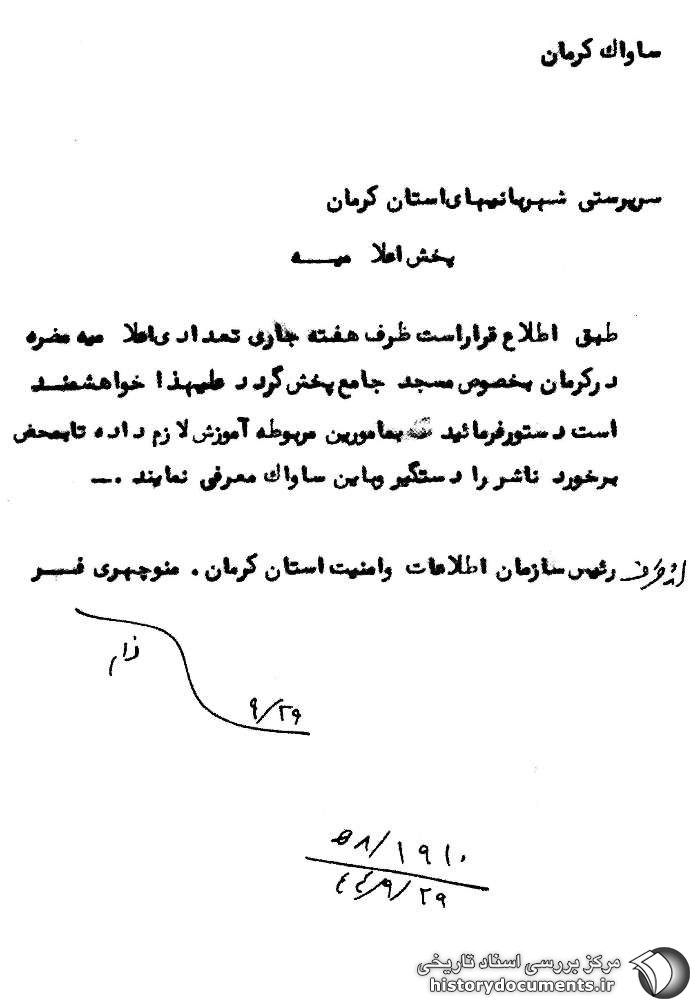 ساواك كرمان
سرپرستی شهربانیهای استان كرمان
پخش اعلا میـــه
طبق اطلاع قراراست ظرف هفته جاری تعدادی اعلا میه مضره
درکرمان بخصوص مسجد جامع پخش گردد علیهذا خواهشمند
است دستورفرمائید بمامورین مربوطه آموزش لازم داده تابمحض
برخورد ناشر را دستگیر وباین ساواك معرفی نمایند .ــ
از طرف رئیس سازمان اطلاعات وامنیت استان كرمان . منوچهری فـر
۹/۲۹
۵۸/۱۹۱۰
۴۴/۹/۲۹
مرکز بررسی اسناد تاریخی
historydocuments.ir